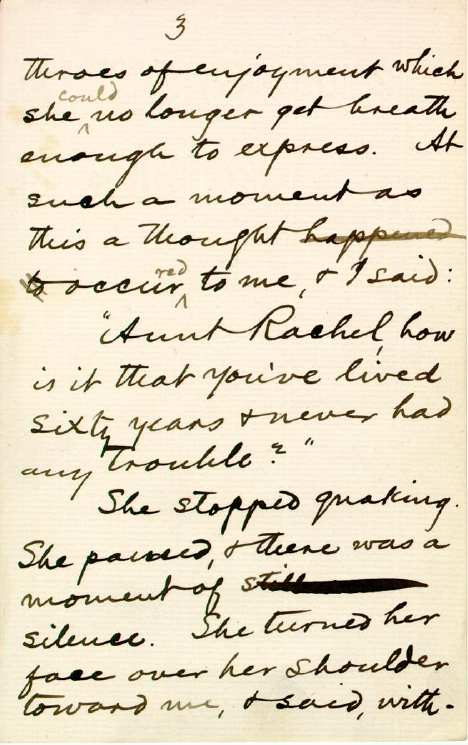 3
throes of enjoyment which
she could no longer get breath
enough to express. At
such a moment as
this a thought happened
to occurred to me, & I said:
"Aunt Rachel, how
is it that you've lived
sixty years & never had
any trouble?"
She stopped quaking.
She paused, & there was a
moment of still
silence. She turned her
face over her shoulder
toward me, & said, with-